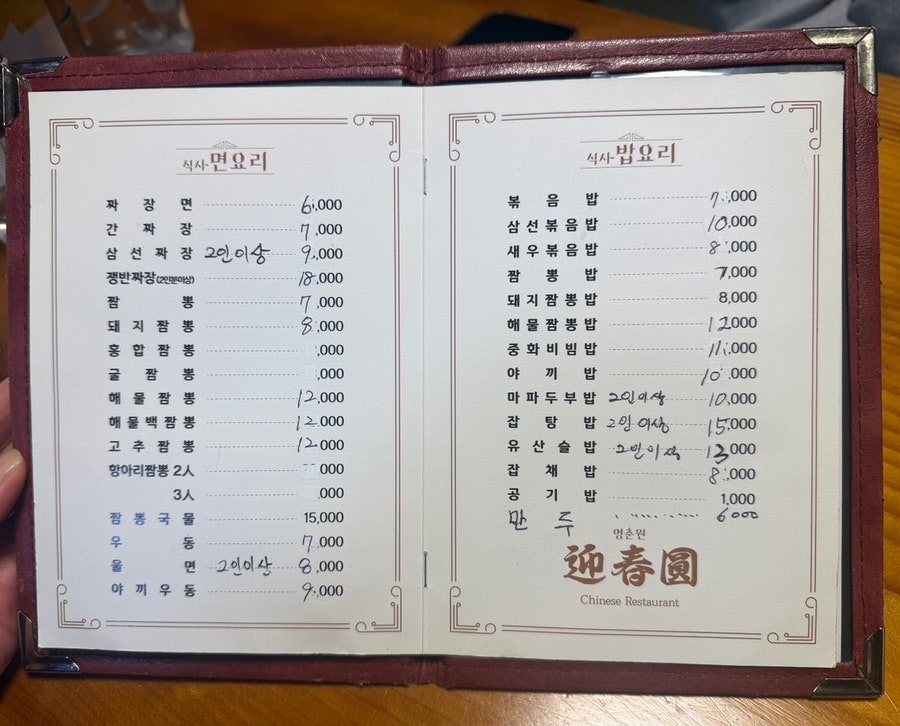 식사·면요리
짜장면 6,000
간짜장 7,000
삼선짜장 2인이상 9,000
쟁반짜장(2인분이상) 18,000
짬뽕 7,000
돼지짬뽕 8,000
홍합짬뽕 ,000
굴짬뽕 ,000
해물짬뽕 12,000
해물백짬뽕 12,000
고추짬뽕 12,000
항아리짬뽕 2人 000
3人 ,000
짬뽕국물 15,000
우동 7,000
울면 2인이상 8,000
야끼우동 9,000
식사·밥요리
볶음밥 7,000
삼선볶음밥 10,000
새우볶음밥 8,000
짬뽕밥 7,000
돼지짬뽕밥 8,000
해물짬뽕밥 12,000
중화비빔밥 11,000
야끼밥 10,000
마파두부밥 2인이상 10,000
잡탕밥 2인이상 15,000
유산슬밥 2인이상 13,000
잡채밥 8,000
공기밥 1,000
만두 6000
영춘원
迎春圓
Chinese Restaurant